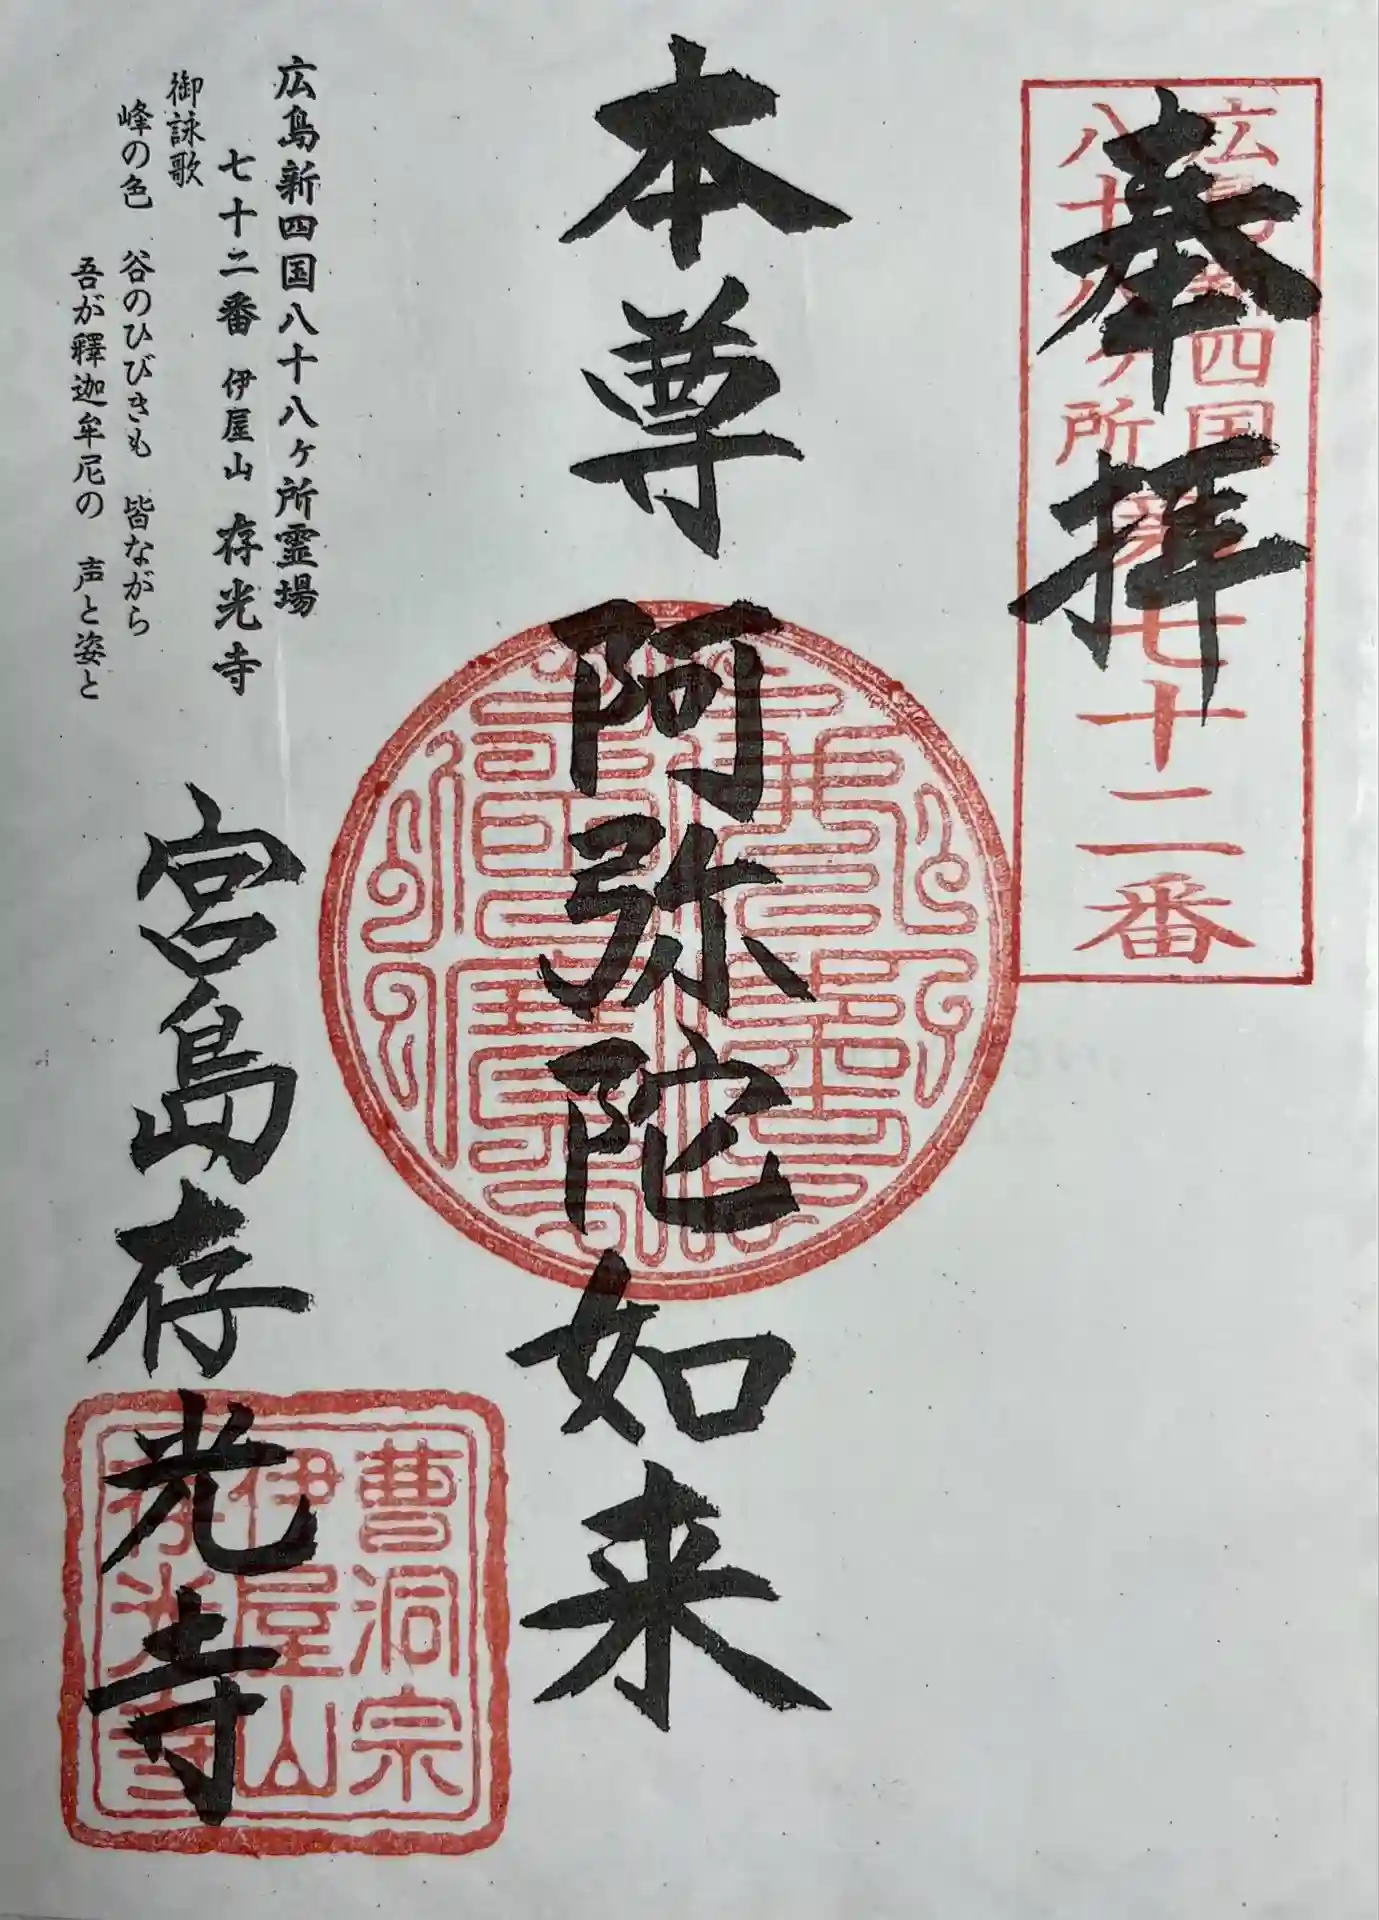 奉拝
広島新四国
八十八ヶ所
第七十二番
本尊 阿弥陀如来
広島新四国八十八ヶ所霊場
七十二番 伊屋山 存光寺
御詠歌
峰の色 谷のひびきも 皆ながら
吾が釋迦牟尼の 声と姿と
宮島存光寺
曹洞宗
伊屋山
存光寺